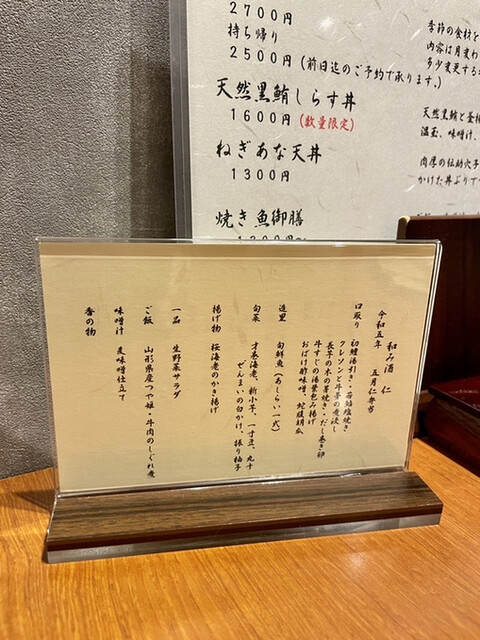 2700円
持ち帰り
2500円(前日迄のご予約で承ります。)
天然黒鮪しらす丼
1600円(数量限定)
ねぎあな天丼
1300円
焼き魚御膳
季節の食材を
内容は月変わ
多少変更する
天然黒鮪と釜
温玉、味噌汁、
肉厚の伝助穴子
かけた丼より
和み酒 仁
令和五年 五月仁弁当
口取り 初鰹湯引き・若鮎塩焼き
クレソンと牛蒡の煮浸し
長芋の木の芽焼き・だし巻き卵
牛すじの湯葉包み揚げ
おばけ酢味噌、蛇腹胡瓜
造里 旬鮮魚(あしらい一式)
旬菜 才巻海老、新小芋、一寸豆、丸十
ぜんまいの白かけ、振り柚子
揚げ物 桜海老のかき揚げ
一品 生野菜サラダ
ご飯 山形県産つや姫・牛肉のしぐれ煮
味噌汁 麦味噌仕立て
香の物